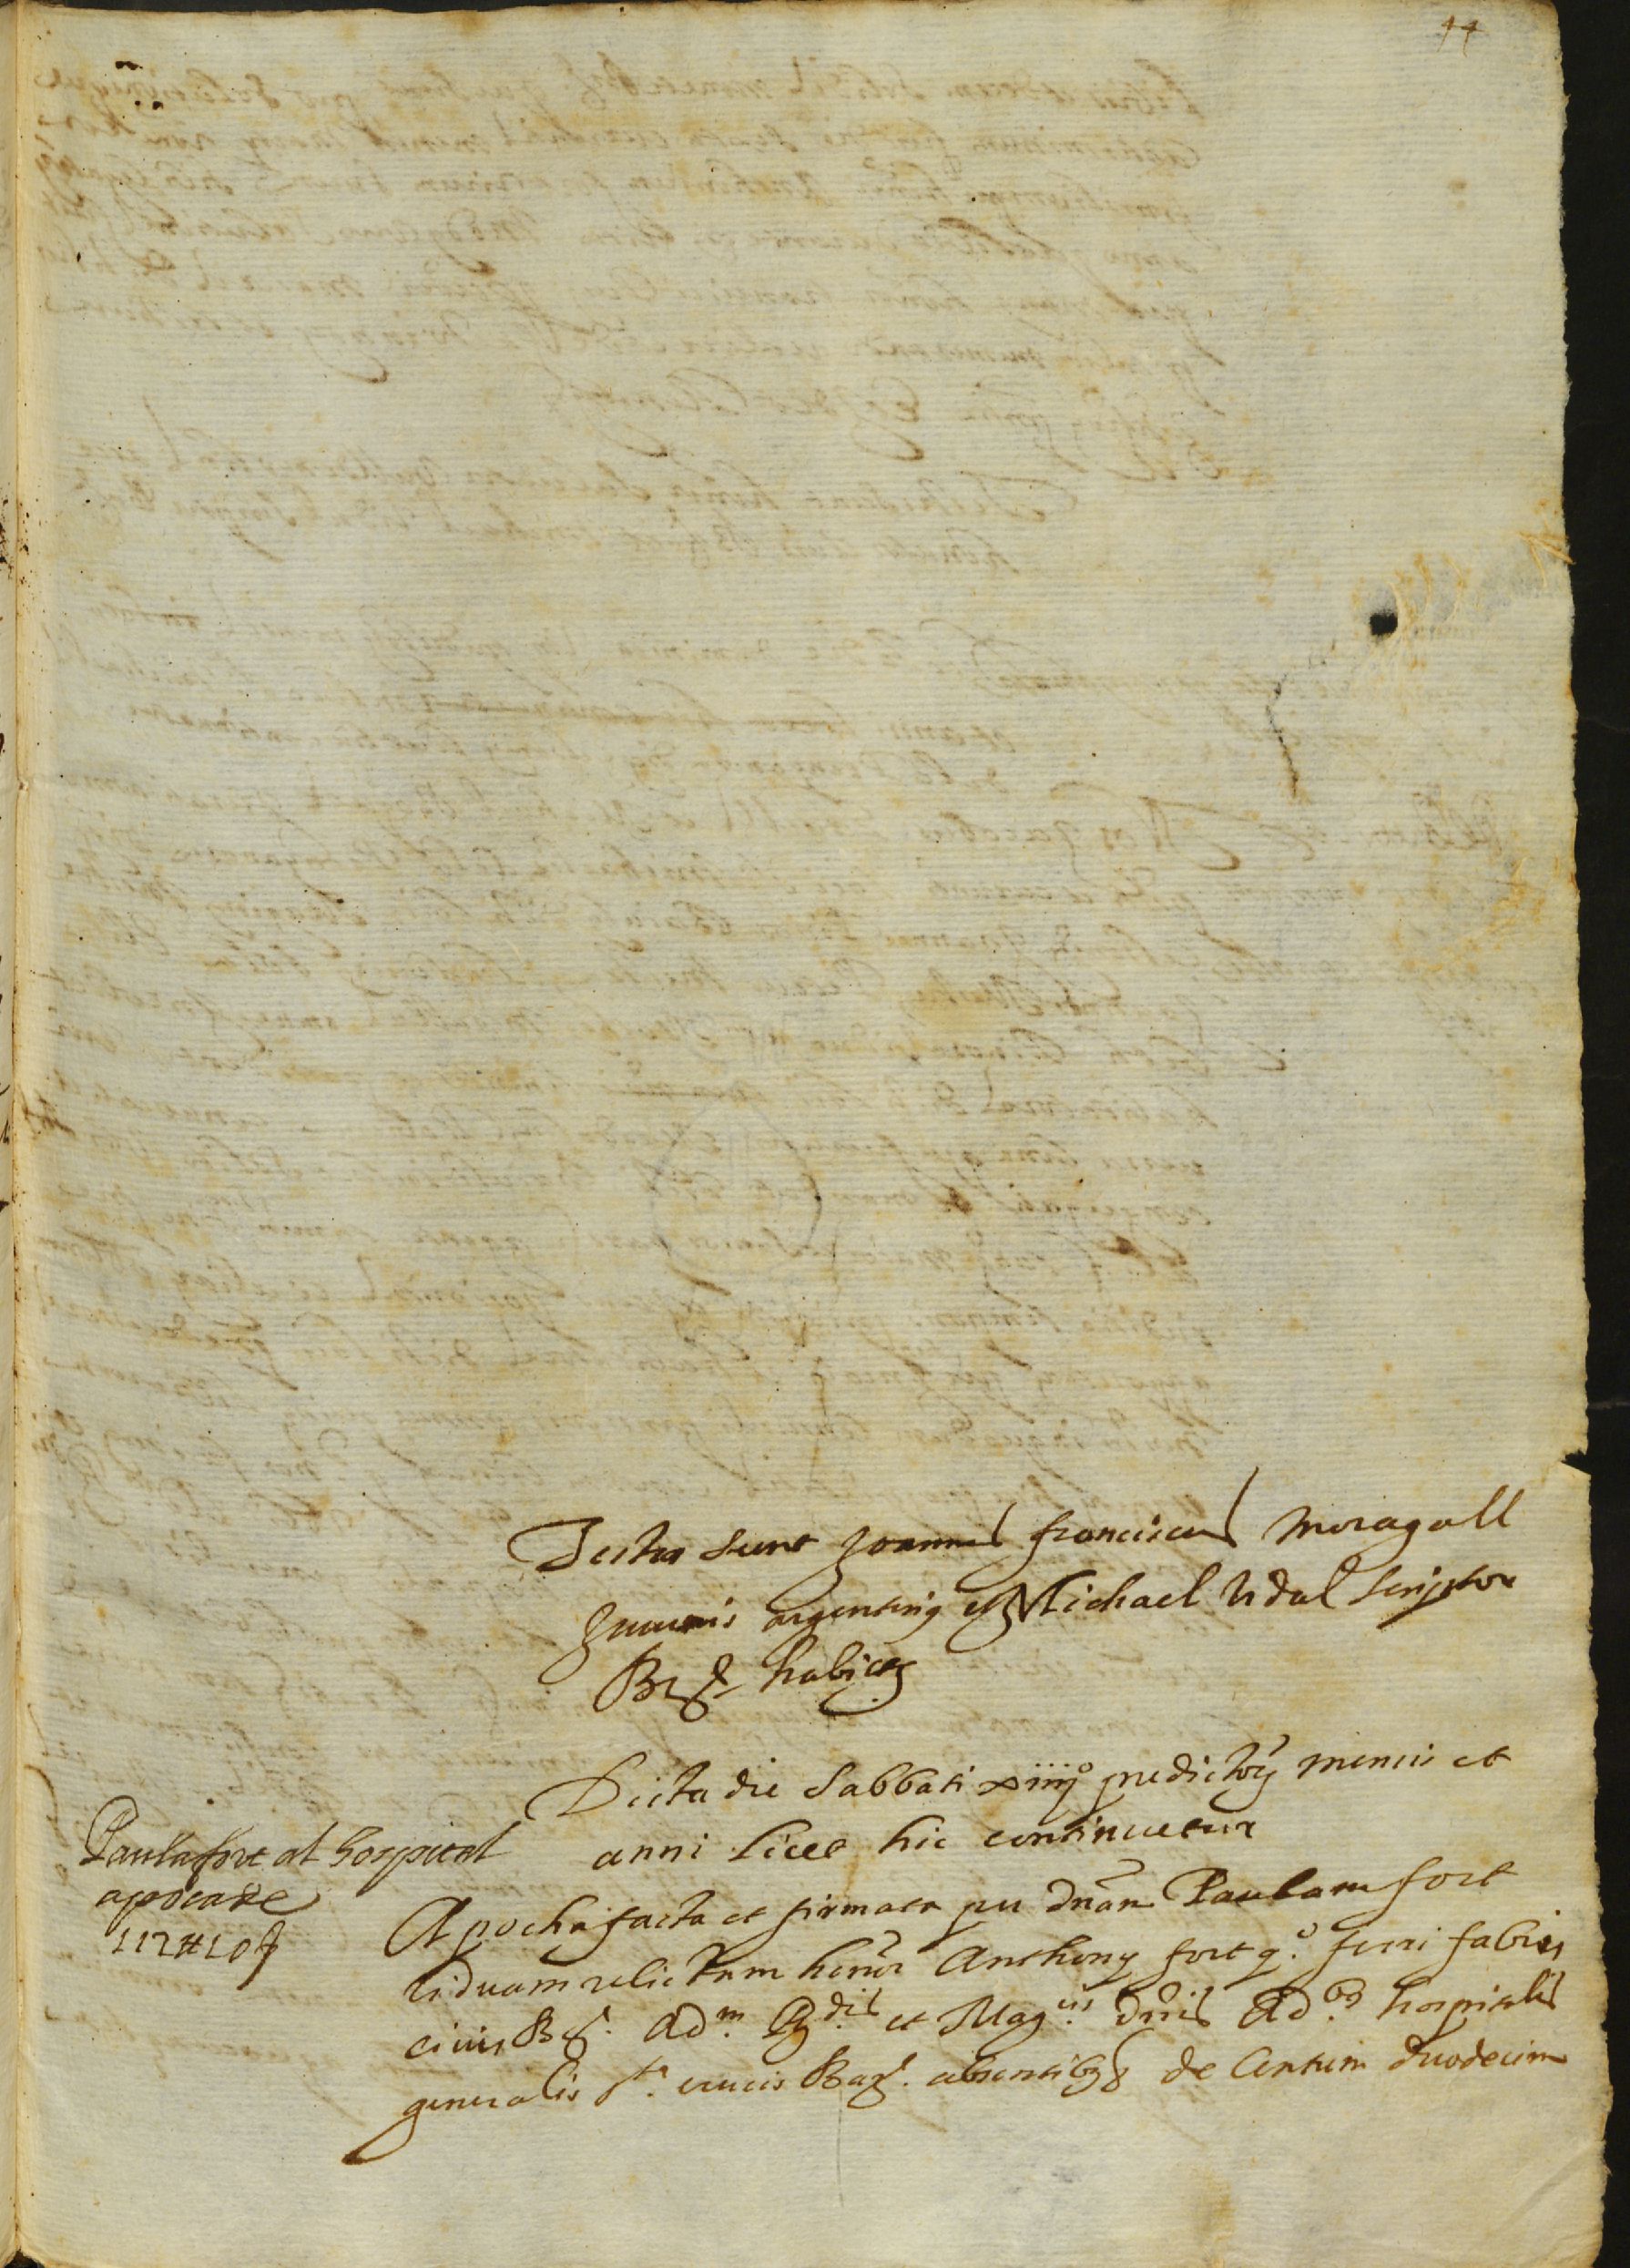 44
Testes sunt Joannes franciscus Miragall
Juvenis argenterius et Michael Vidal scriptor
Bar^e habit^es
Dicta die Sabbati xiiij^o predictorum mensis et
anni licet hic continuetur
Paula fort al hospital
apoca de
112 ₶ 10 s
Apocha facta et firmata per dnām Paulam fort
viduam relictam honor Anthonij fort q^o. ferri fabri
civis Bar^e. Ad^m. R^dis et Mag^cis dnīs Ad^bus hospitalis
generalis s^te. crucis Bar^e. absentibus de Centum duodecim